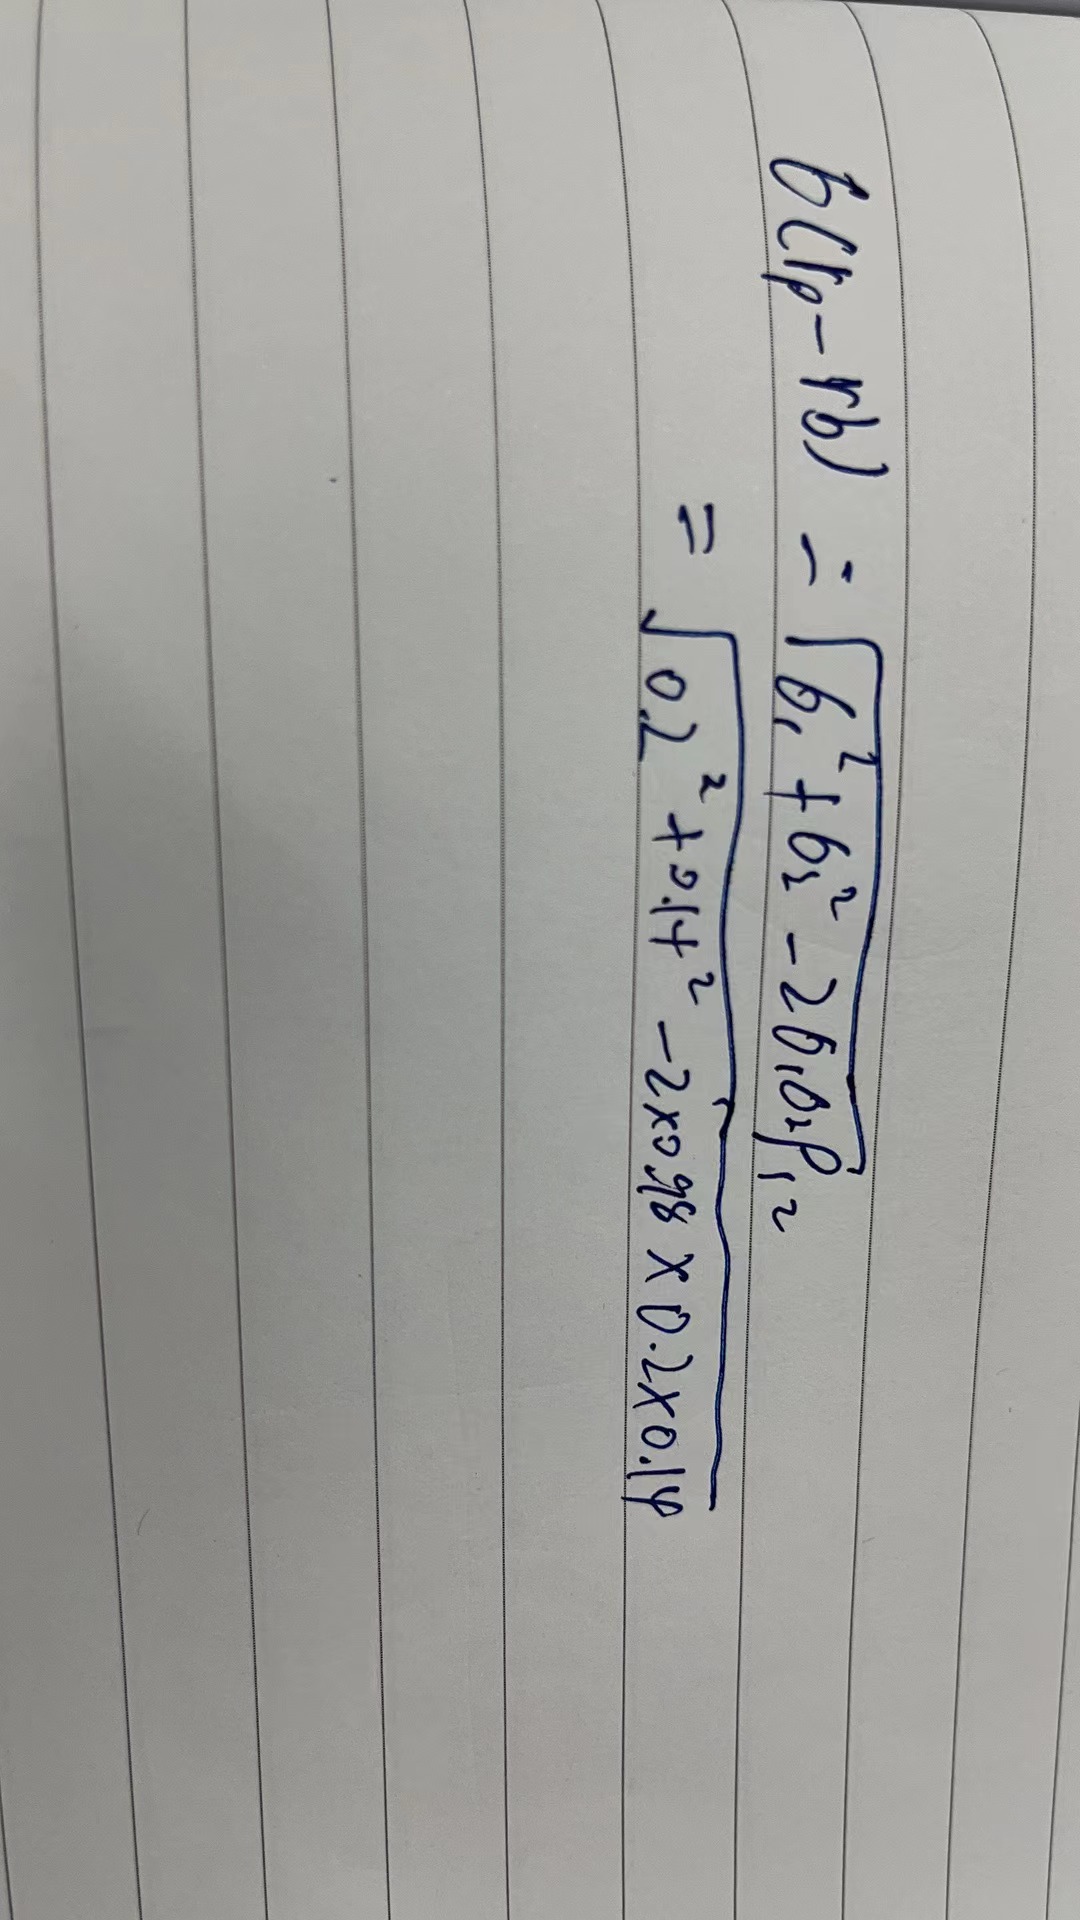 σ(rp-rb) = √(σ₁² + σ₂² - 2σ₁σ₂ρ₁₂)
= √(0.2² + 0.14² - 2×0.98×0.2×0.14)